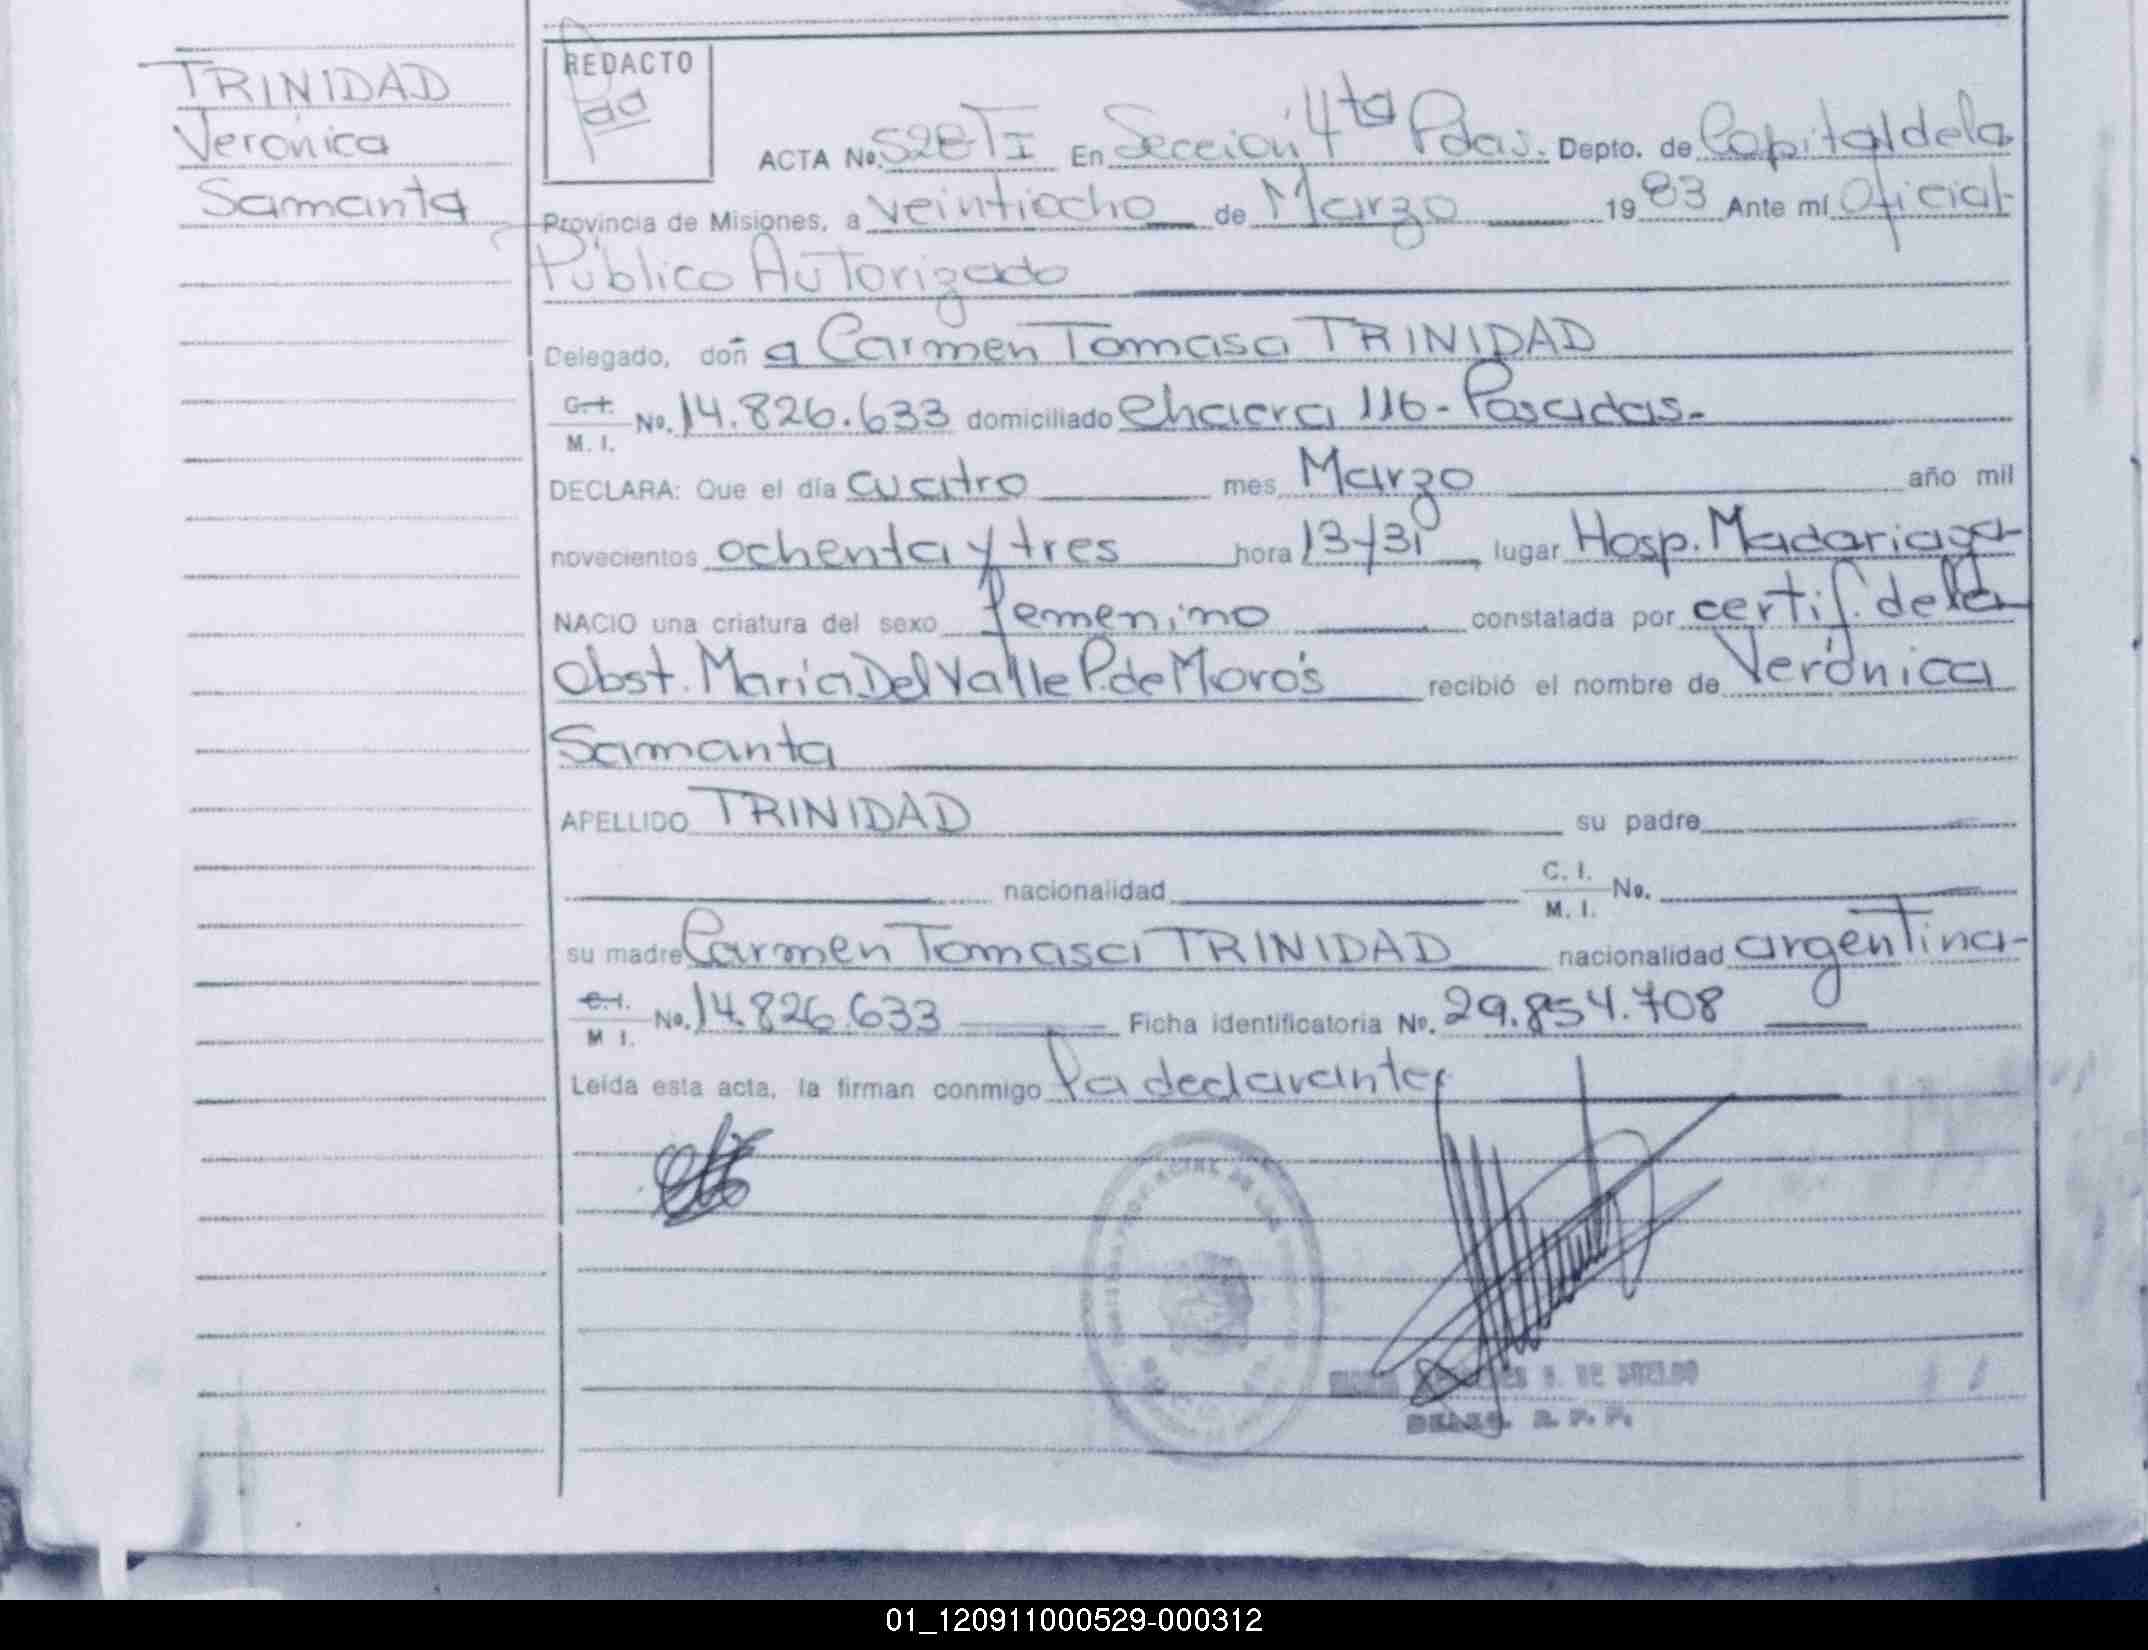 TRINIDAD
Verónica
Samanta
REDACTO
ACTA No. 528 TI En Sección 4ta Pdas. Depto. de Capital de la
Provincia de Misiones, a veintiocho de Marzo 1983 Ante mí Oficial
Público Autorizado
Delegado, doña Carmen Tomasa TRINIDAD
C.I. M.I. No. 14.826.633 domiciliado Chacra 116 - Posadas.-
DECLARA: Que el día cuatro mes Marzo año mil
novecientos ochenta y tres hora 13y31 lugar Hosp. Madariaga-
NACIO una criatura del sexo femenino constatada por certif. de la
Obst. María Del Valle P. de Moro's recibió el nombre de Verónica
Samanta
APELLIDO TRINIDAD su padre
nacionalidad C.I. M.I. No.
su madre Carmen Tomasa TRINIDAD nacionalidad argentina-
C.I. M.I. No. 14.826.633 Ficha identificatoria No. 29.854.708
Leída esta acta, la firman conmigo la declarante
DE LAS
DE SUELDO
DELEG. R. P. P.
01_120911000529-000312